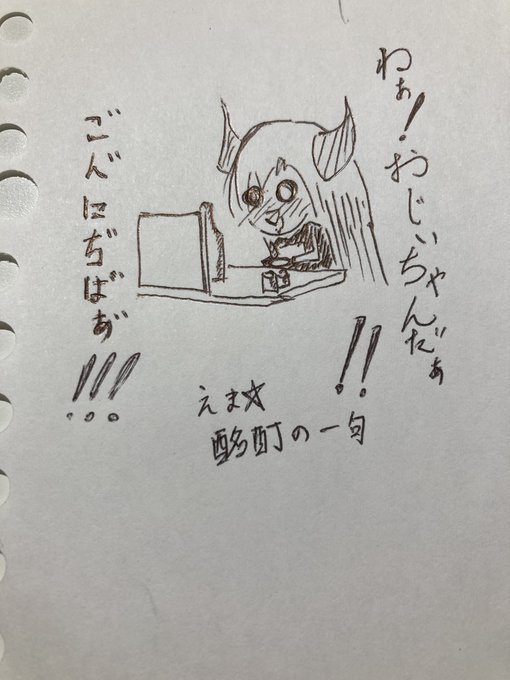 わぁ！おじぃちゃんだぁ!!
ごん゛にぢばあ゛!!!
えま☆
酩酊の一句